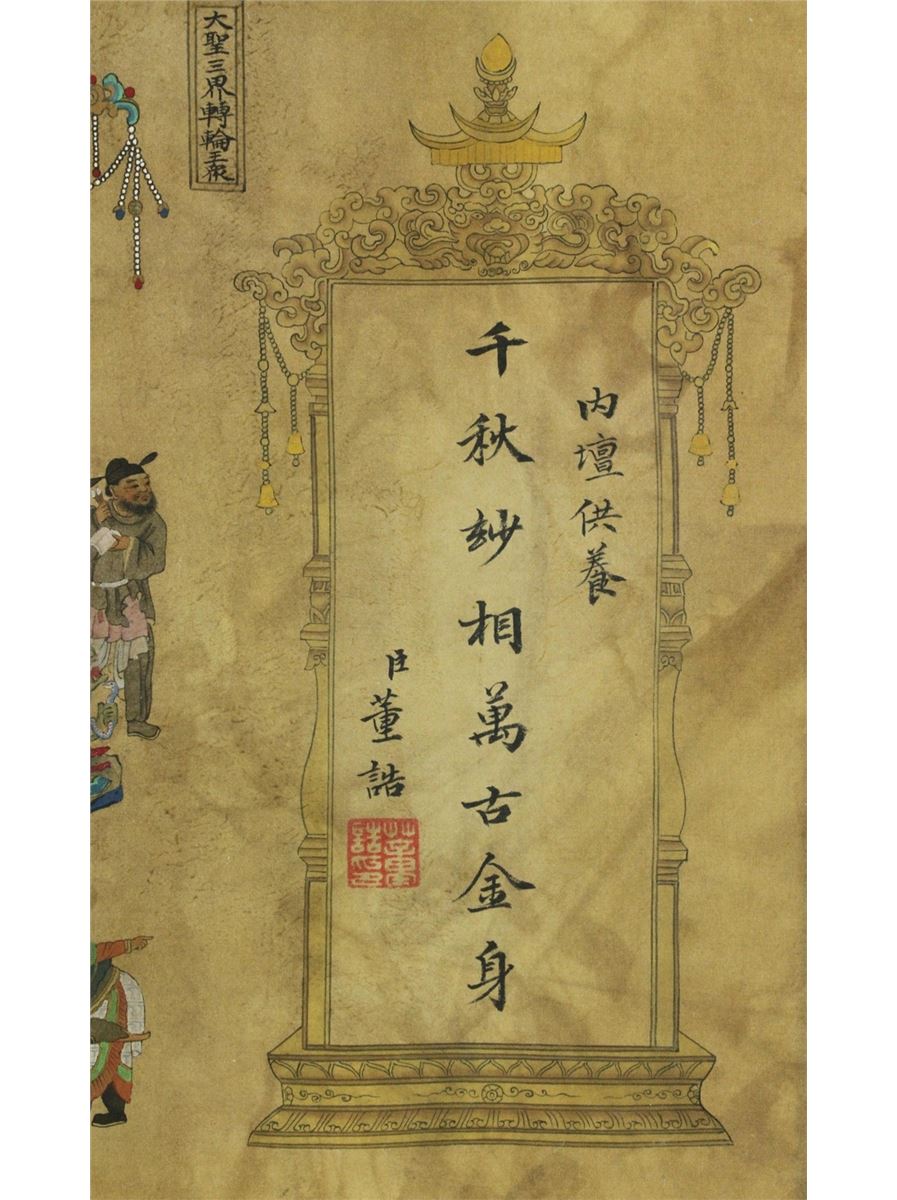 内壇供養
千秋玅相萬古金身
臣董誥
董誥印
大聖三界轉輪王衆